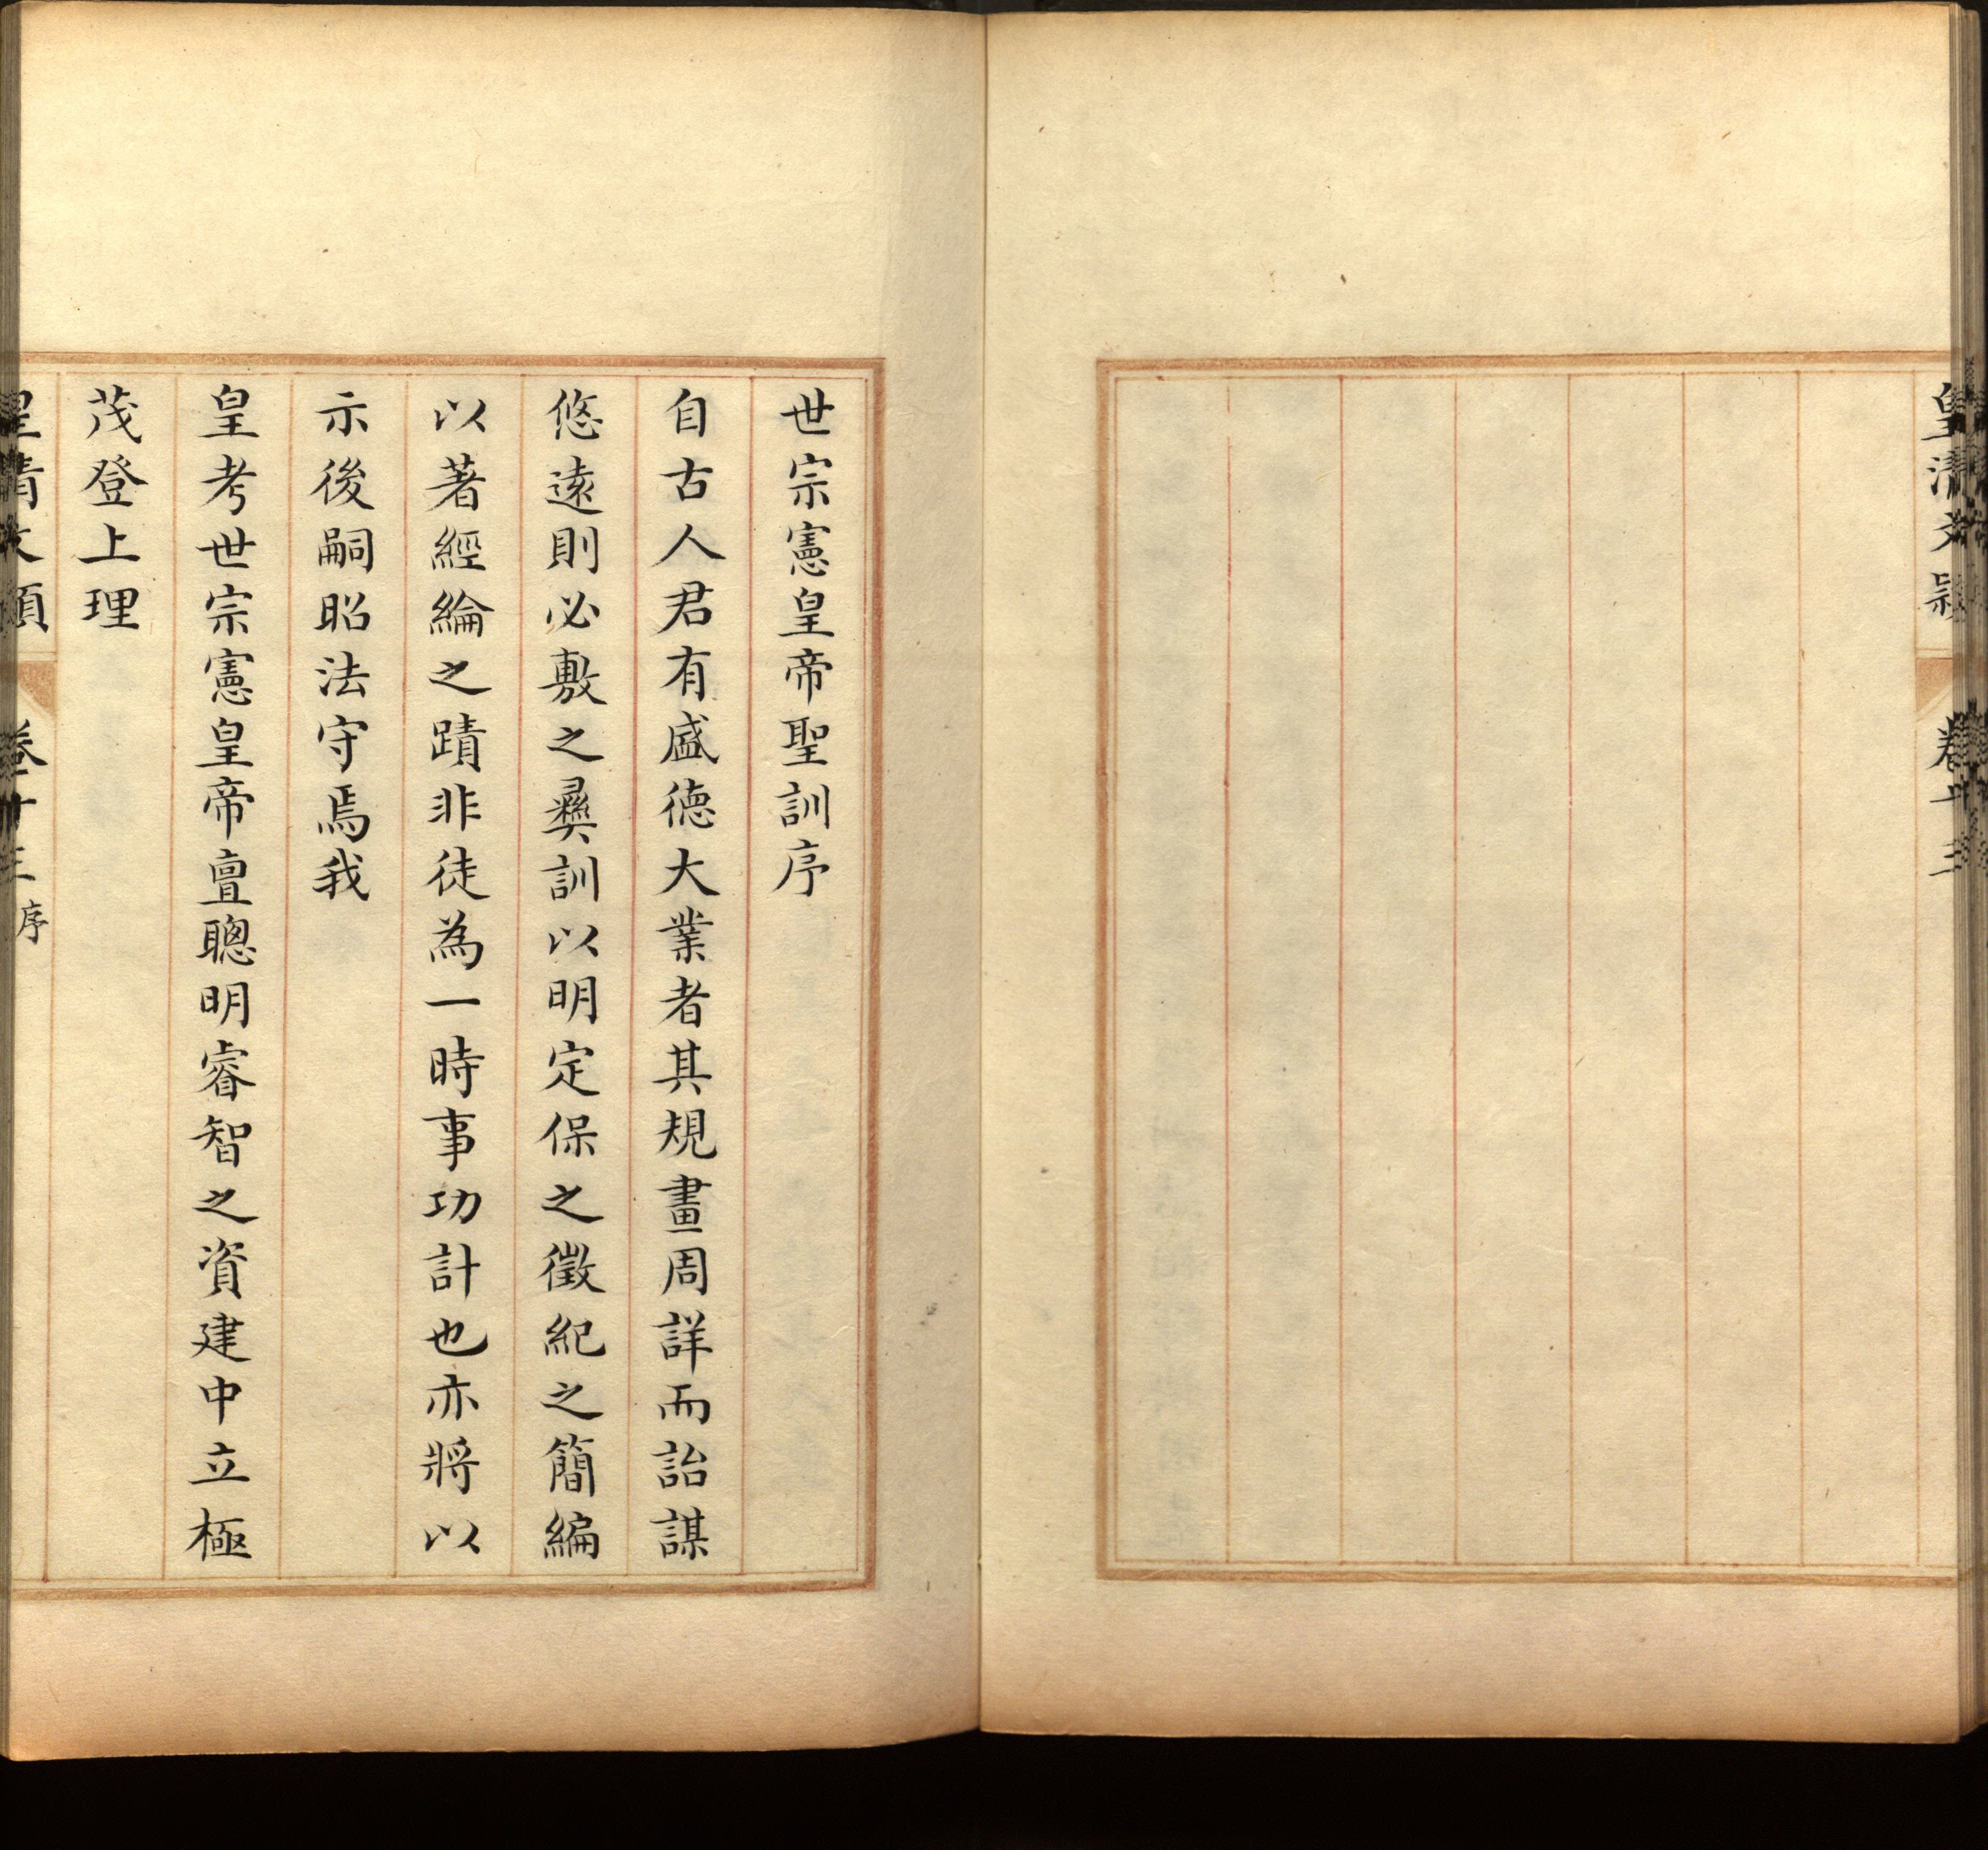 皇清文穎 卷十三
世宗憲皇帝聖訓序
自古人君有盛德大業者其規畫周詳而詒謀
悠遠則必敷之彞訓以明定保之徵紀之簡編
以著經綸之蹟非徒為一時事功計也亦將以
示後嗣昭法守焉我
皇考世宗憲皇帝亶聰明睿智之資建中立極
茂登上理
皇清文穎 卷十三 序